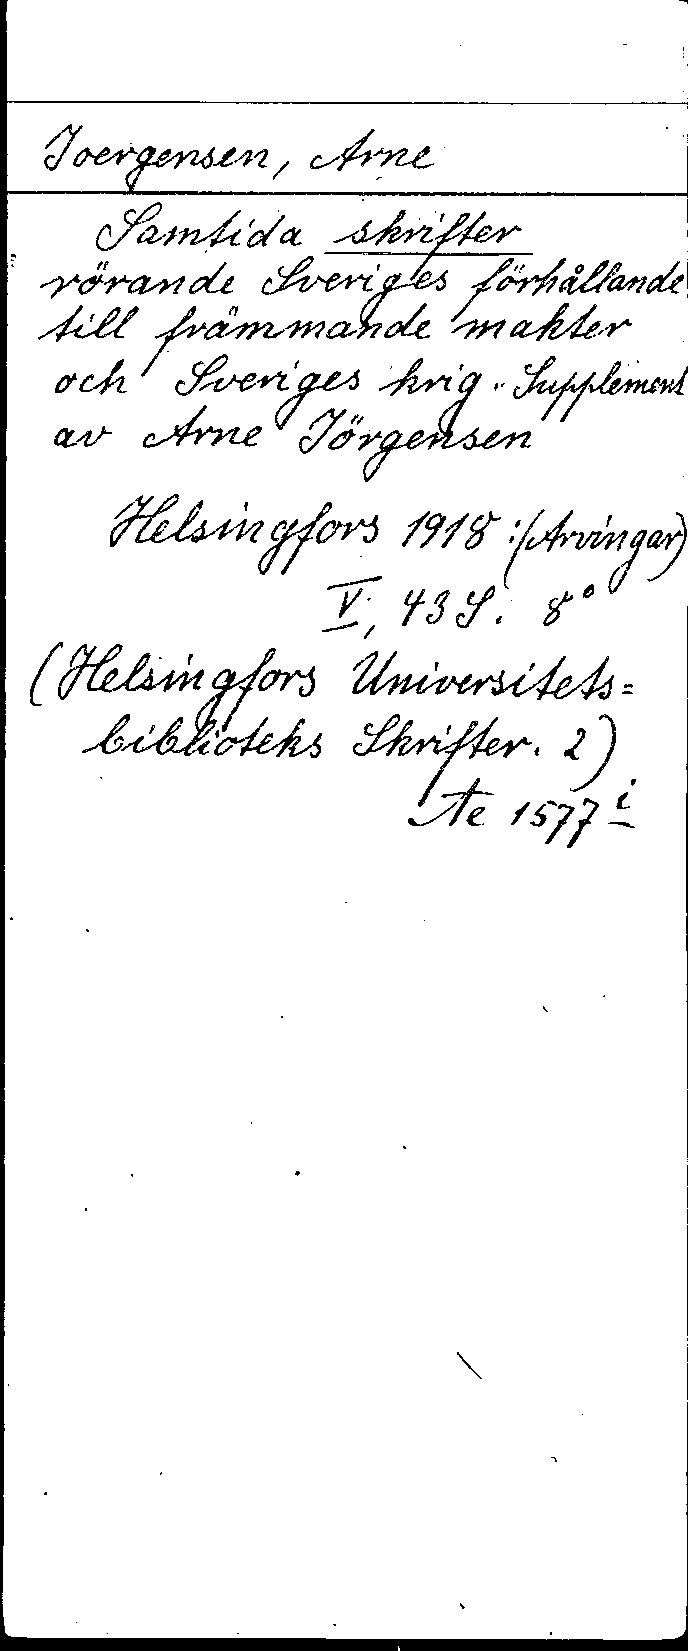 Joergensen, Arne
Samtida skrifter
rörande Sveriges förhållande
till främmande makter
och Sveriges krig. Supplement
av Arne Jörgensen
Helsingfors 1918: (Arvingar)
V, 43 S. 8°
(Helsingfors Universitets=
biblioteks Skrifter. 2)
Ae 1577 i